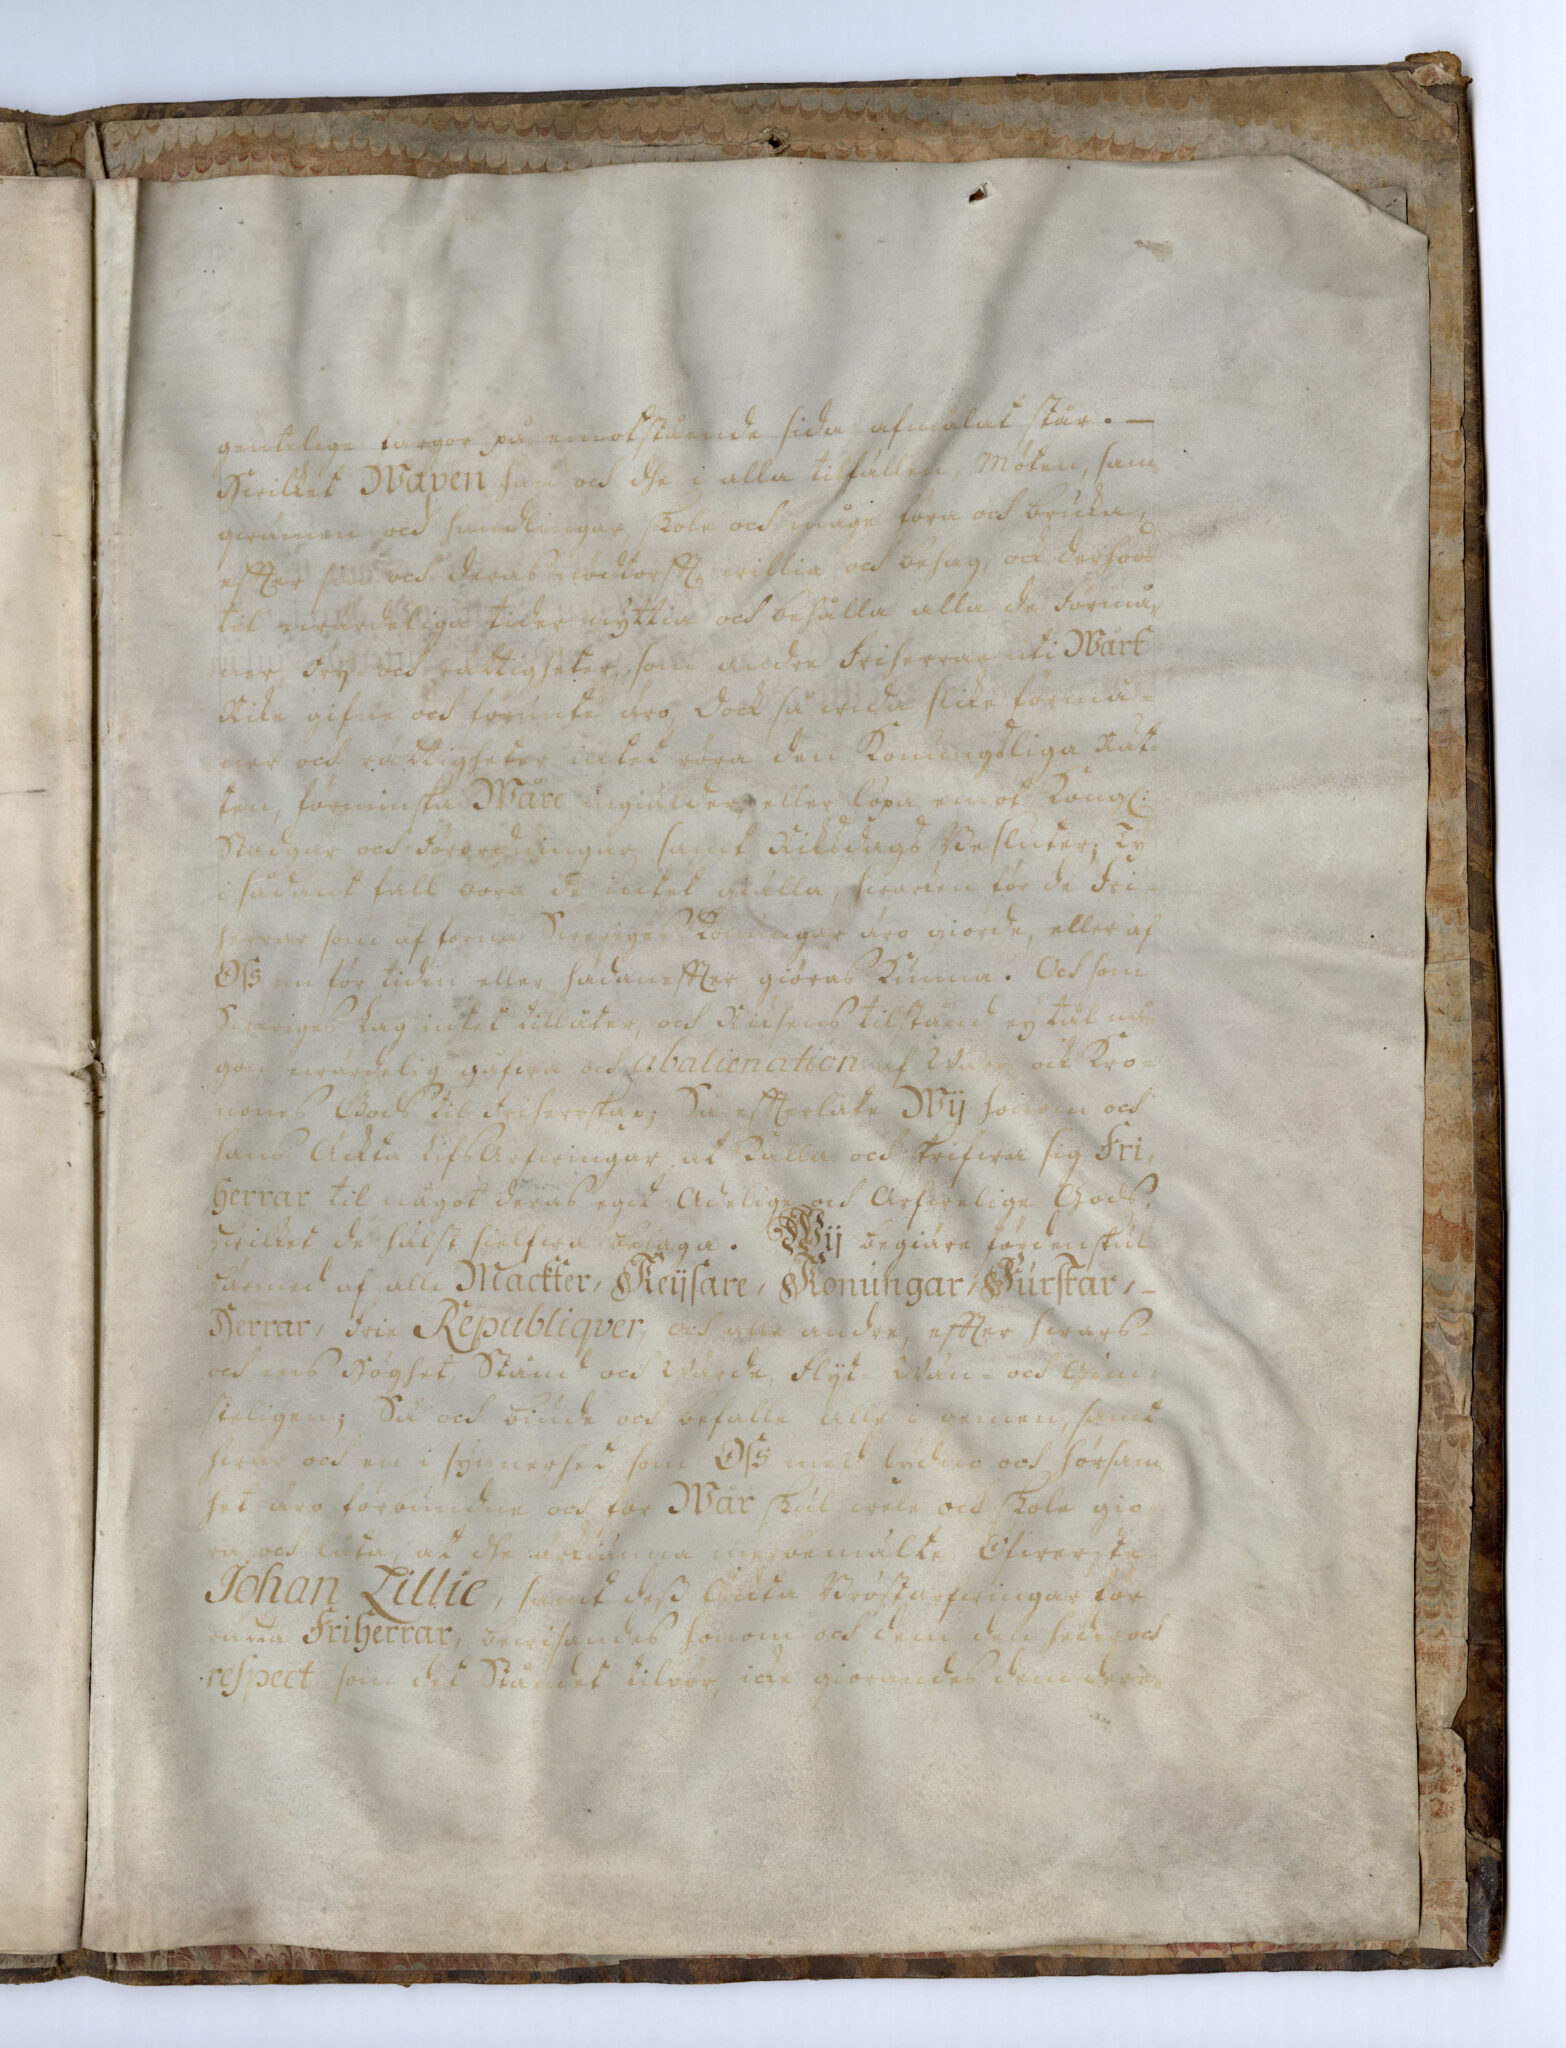 gentelige färgor på emotstående sida afmålat står. —
Hwilket Wapen han och dhe i alla tilfällen, Möten, sam¬
qwämen och handlingar skole och måge föra och bruka,
effter sin och deras nödtorfft, willia och behag, och derhoos
til ewärdeliga tider nyttia och behålla alla de förmå¬
ner, fry- och rättigheter, som andre Friherrar uti Wårt
Rike gifne och förunte äro, dock så wida slike förmå¬
ner och rättigheter intet röra den Konungsliga Rät¬
ten, förminska Wåre ingiälder, eller löpa emot Kongl:
Stadgar och Förordningar, samt Riksdags Besluter; Ty
i sådant fall böra de intet giälla, hwarken för de Fri¬
herrar som af forna Sweriges Konungar äro giorde, eller af
Oss nu för tiden eller hädaneffter giöras kunna. Och som
Sweriges Lag intet tillåter, och Riksens tilstånd ey tål nå¬
gon ewärdelig gåfwa och abalienation af Wåre och Kro¬
nones Gods til Friherrskap; Så effterlåte Wij honom och
hans Äckta LifsArfwingar at kalla och skrifwa sig Fri¬
herrar til något deras eget Adelige och Arfwelige Gods,
hwilket de hälst sielfwa behaga. Wij begiäre fördenskul
härmed af alle Mackter, Keijsare, Konungar, Furstar, –
Herrar, frie Republiqver, och alle andre, effter hwars
och ens Höghet, Stånd och Wärde, Flyt- Wän- och Gun¬
steligen; Så och biude och befalle alle i gemen, samt
hwar och en i synnerhet, som Oss med lydno och hörsam¬
het äro förbundne och för Wår skul wele och skole giö¬
ra och låta, at dhe ärkänna merbemälte Öfwerste
Johan Lillie, samt dess Äckta Bröstarfwingar för
rätta Friherrar, bewisandes honom och dem den heder och
respect, som det Ståndet tilhör, icke giörandes dem deru¬